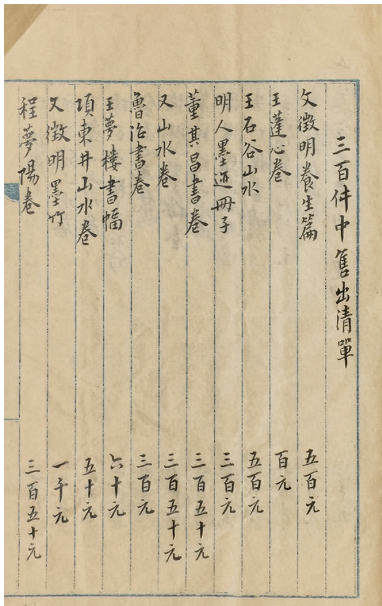 三百件中售出清單
文徵明養生篇 五百元
王蓬心卷 百元
王石谷山水 五百元
明人墨迹冊子 三百元
董其昌書卷 三百五十元
又山水卷 三百五十元
魯治書卷 三百元
王夢樓書幅 六十元
項東井山水卷 五十元
文徵明墨竹 一千元
程夢陽卷 三百五十元